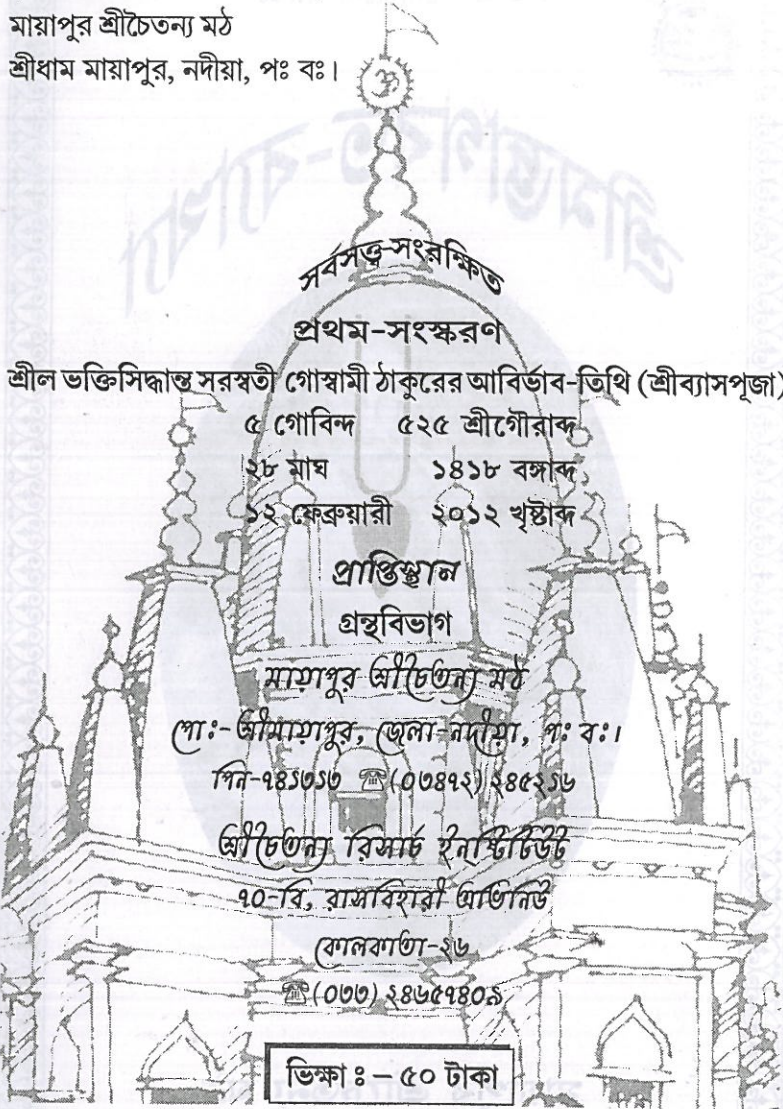 মায়াপুর শ্রীচৈতন্য মঠ
শ্রীধাম মায়াপুর, নদীয়া, পঃ বঃ।
সর্বসত্ত্ব-সংরক্ষিত
প্রথম-সংস্করণ
শ্রীল ভক্তিসিদ্ধান্ত সরস্বতী গোস্বামী ঠাকুরের আবির্ভাব-তিথি (শ্রীব্যাসপূজা)
৫ গোবিন্দ ৫২৫ শ্রীগৌরাব্দ
২৮ মাঘ ১৪১৮ বঙ্গাব্দ
১২ ফেব্রুয়ারী ২০১২ খৃষ্টাব্দ
প্রাপ্তিস্থান
গ্রন্থবিভাগ
মায়াপুর শ্রীচৈতন্য মঠ
পোঃ-শ্রীমায়াপুর, জেলা-নদীয়া, পঃ বঃ।
পিন-৭৪১৩১৩ ☎(০৩৪৭২) ২৪৫২১৬
শ্রীচৈতন্য রিসার্চ ইনষ্টিটিউট
৭০-বি, রাসবিহারী অ্যাভিনিউ
কোলকাতা-২৬
☎(০৩৩) ২৪৬৫৭৪০৯
ভিক্ষা ঃ – ৫০ টাকা